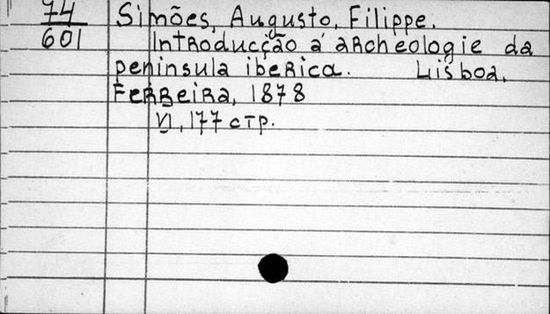 74
601
Simões, Augusto, Filippe.
Introducção á archeologie da
peninsula iberica. Lisboa,
Ferreira, 1878
VI, 177 стр.